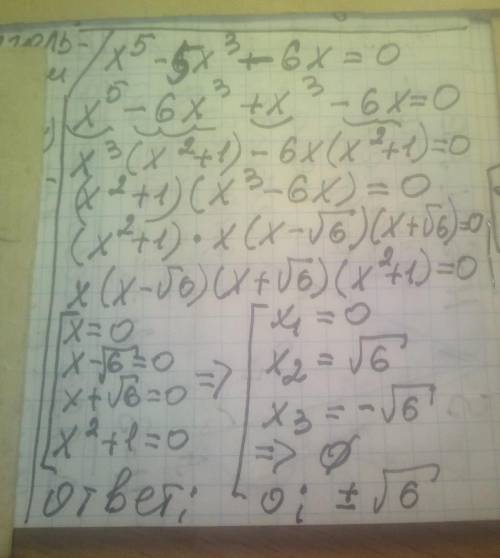 x⁵ - 5x³ - 6x = 0
x⁵ - 6x³ + x³ - 6x = 0
x³(x² + 1) - 6x(x² + 1) = 0
(x² + 1)(x³ - 6x) = 0
(x² + 1) · x(x - √6)(x + √6) = 0
x(x - √6)(x + √6)(x² + 1) = 0
[ x = 0
x - √6 = 0
x + √6 = 0
x² + 1 = 0
=> [ x₁ = 0
x₂ = √6
x₃ = -√6
=> ∅
Ответ: 0; ± √6